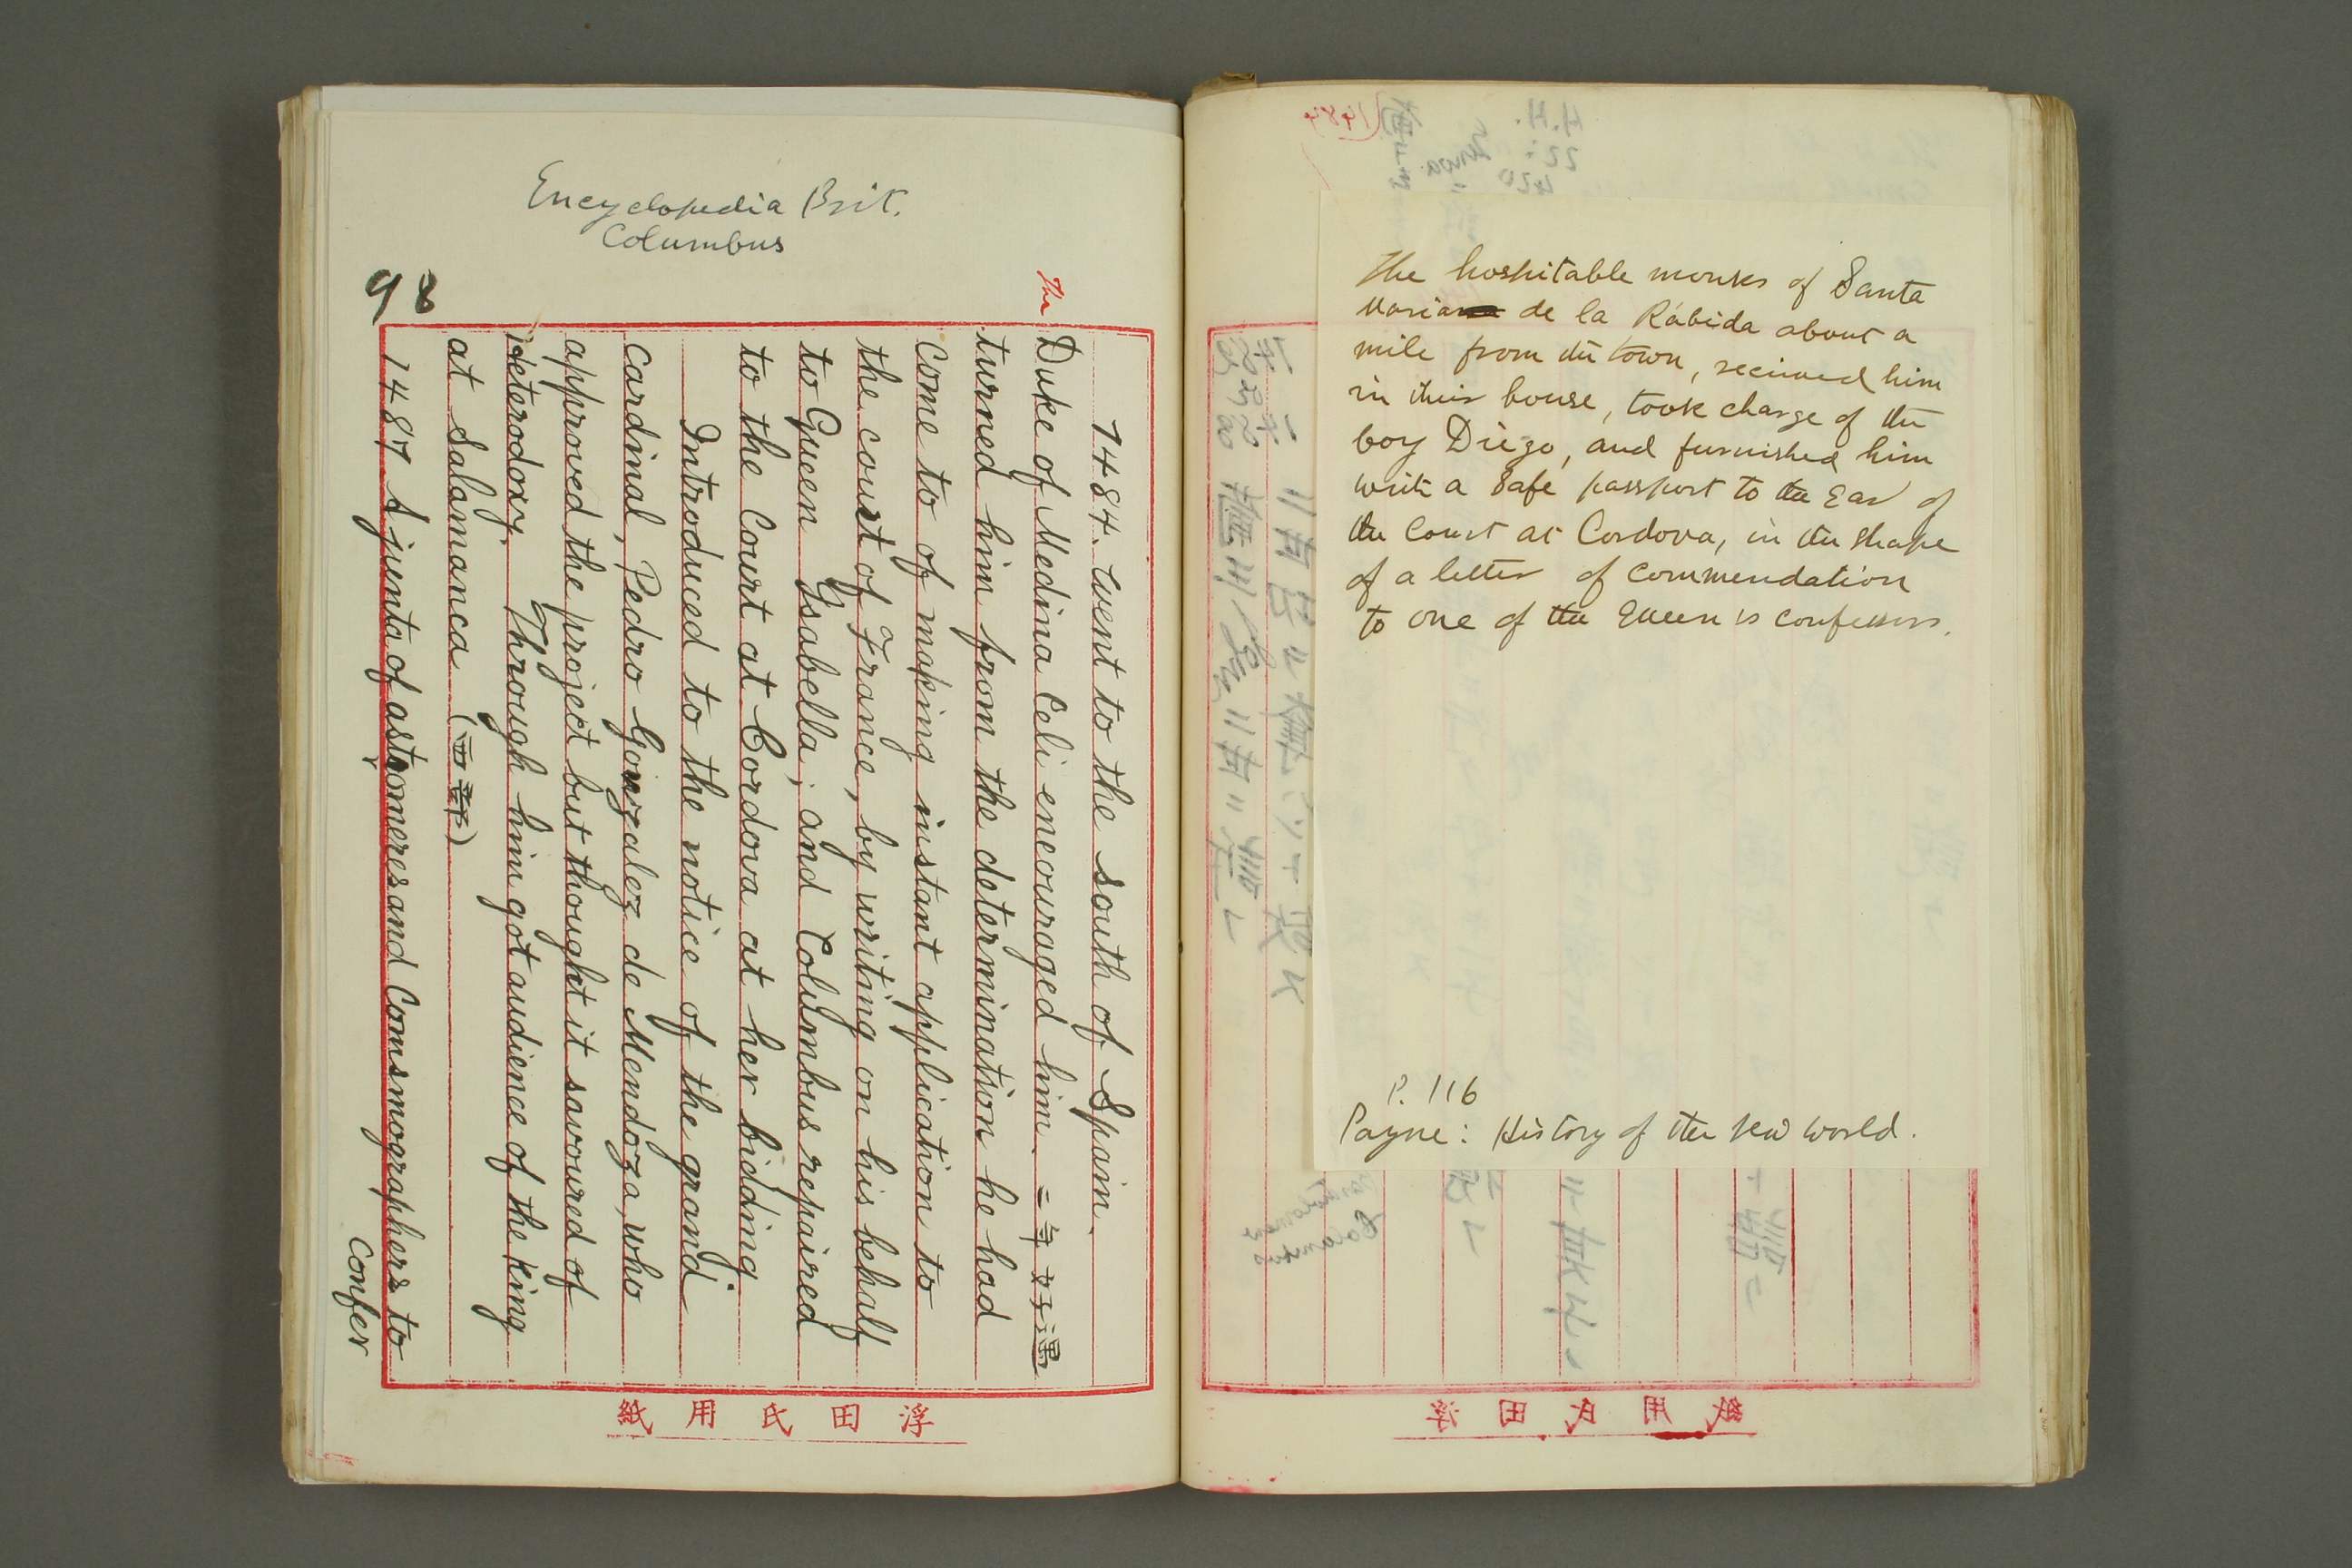 Encyclopedia Brit.
Columbus
98
The
1484. Went to the south of Spain.
Duke of Medina Celi encouraged him. = 寺 好遇
turned him from the determination he had
come to of making instant application to
the court of France, by writing on his behalf
to Queen Ysabella; and Columbus repaired
to the Court at Cordova at her bidding.
Introduced to the notice of the grand
Cardinal, Pedro Gonzalez de Mendoza, who
approved the project but thought it savoured of
heterodoxy. Through him got audience of the king
at Salamanca
1487 A junta of astromeres and Consmographers to
confer
浮田氏用紙
The hospitable monks of Santa
Maria de la Rábida about a
mile from the town, received him
in their house, took charge of the
boy Diego, and furnished him
with a safe passport to the Ear of
the Court at Cordova, in the shape
of a letter of commendation
to one of the Queen's confessors.
P. 116
Payne: History of the New World.